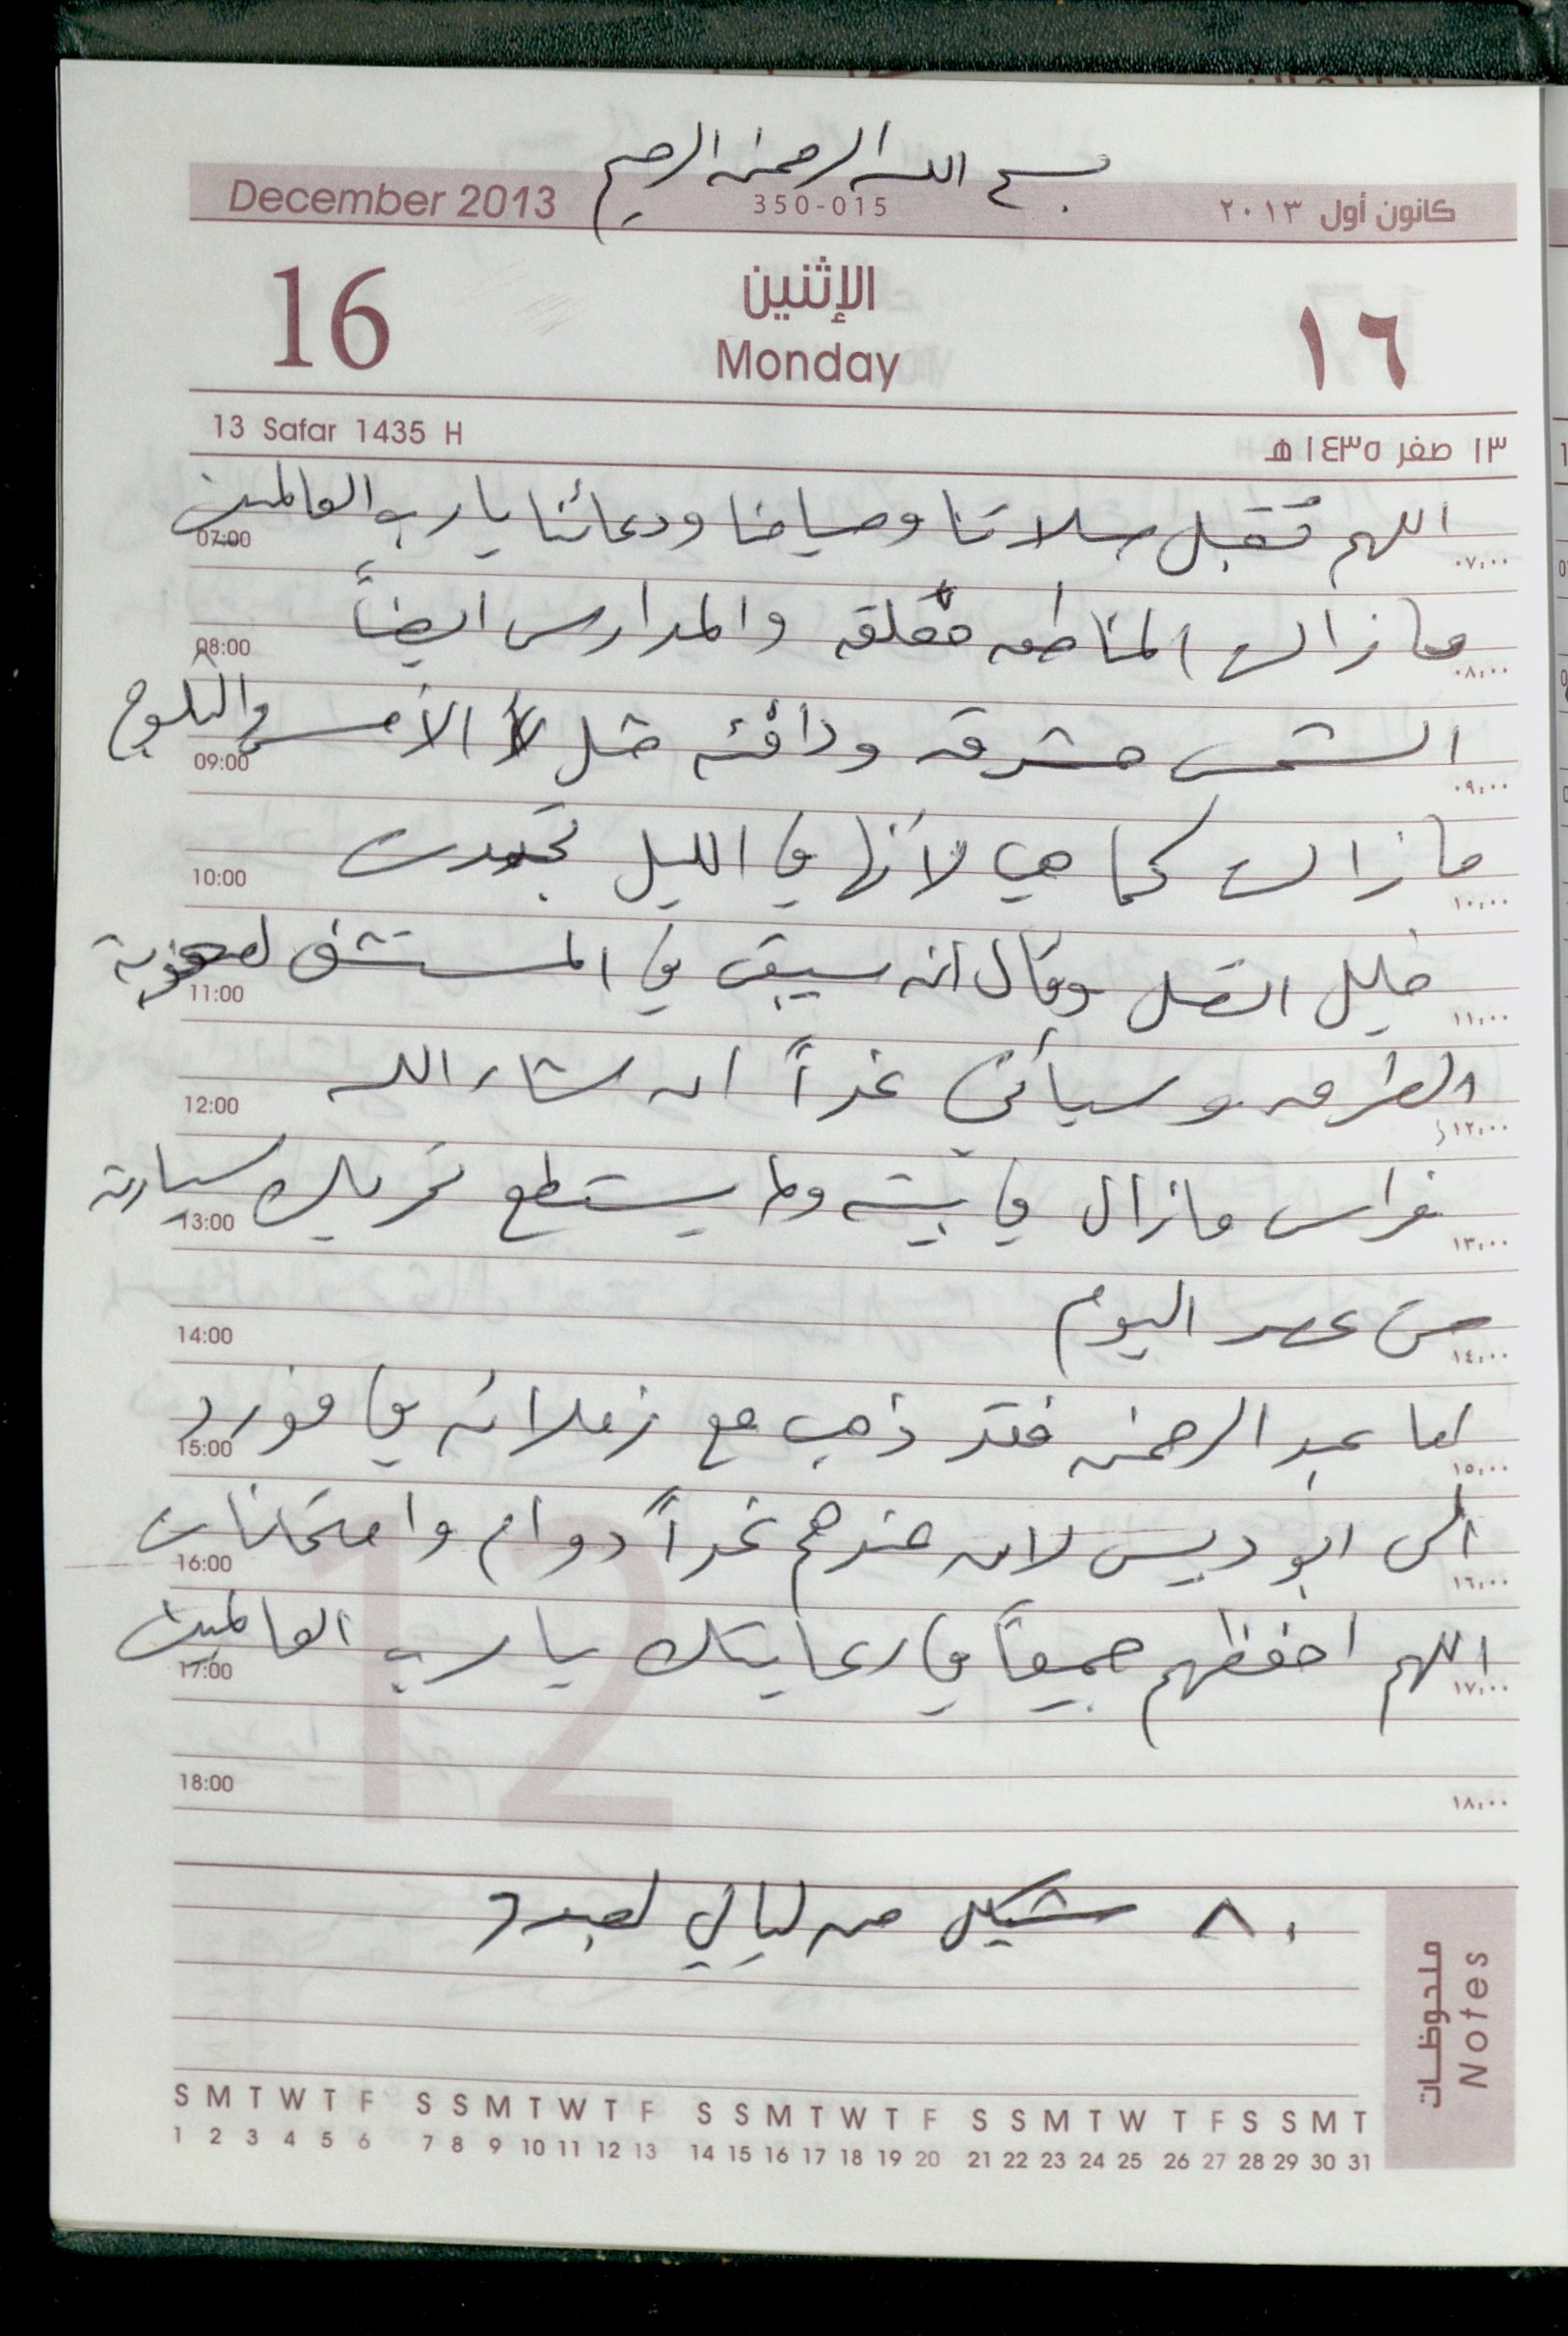 بسم الله الرحمن الرحيم
December 2013 350-015 كانون أول ٢٠١٣
16 الإثنين ١٦
Monday
13 Safar 1435 H ١٣ صفر ١٤٣٥ هـ
اللهم تقبل صلاتنا وصيامنا ودعائنا يا رب العالمين
07:00 ٠٧:٠٠
مازالت المناطق مغلقه والمدارس ايضاً
08:00 ٠٨:٠٠
الشمس مشرقه ودافئه مثل الأمس والثلوج
09:00 ٠٩:٠٠
مازالت كما هي لأنها في الليل تجمدت
10:00 ١٠:٠٠
خليل اتصل وقال انه سيبقى في المستشفى لصعوبة
11:00 ١١:٠٠
الطرق وسيأتي غداً ان شاء الله
12:00 ١٢:٠٠
فراس مازال في بيته ولم يستطع تحريك سيارته
13:00 ١٣:٠٠
حتى عصر اليوم
14:00 ١٤:٠٠
اما عبد الرحمن فقد ذهب مع زملائه في فورد
15:00 ١٥:٠٠
الى ابو ديس لان عندهم غداً دوام وامتحانات
16:00 ١٦:٠٠
اللهم احفظهم جميعاً في رعايتك يا رب العالمين
17:00 ١٧:٠٠
18:00 ١٨:٠٠
12
٨٠ شيكل من ليالي لعبد
ملحوظات
Notes
S M T W T F S S M T W T F S S M T W T F S S M T W T F S S M T
1 2 3 4 5 6 7 8 9 10 11 12 13 14 15 16 17 18 19 20 21 22 23 24 25 26 27 28 29 30 31